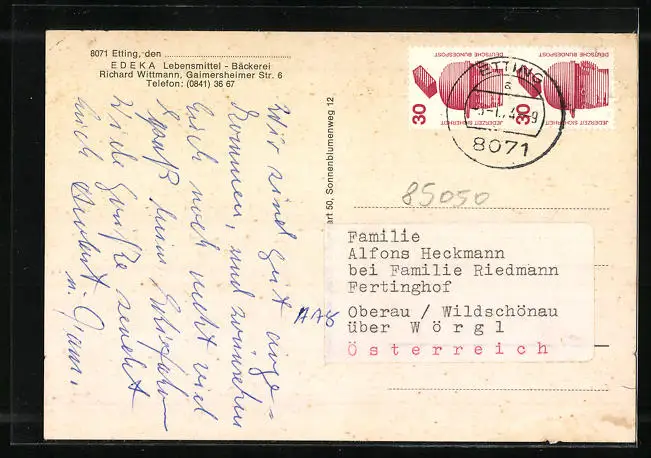 8071 Etting, den
EDEKA Lebensmittel - Bäckerei
Richard Wittmann, Gaimersheimer Str. 6
Telefon: (0841) 36 67
Wir sind gut ange-
kommen, und wünschen
Euch noch recht viel
Spaß beim Skifahren
Viele Grüße sendet
Euch Herbert
u.
art 50, Sonnenblumenweg 12
30
DEUTSCHE BUNDESPOST
JEDERZEIT SICHERHEIT
30
DEUTSCHE BUNDESPOST
JEDERZEIT SICHERHEIT
ETTING
a
8071
85050
Familie
Alfons Heckmann
bei Familie Riedmann
Fertinghof
Oberau / Wildschönau
über Wörgl
Österreich